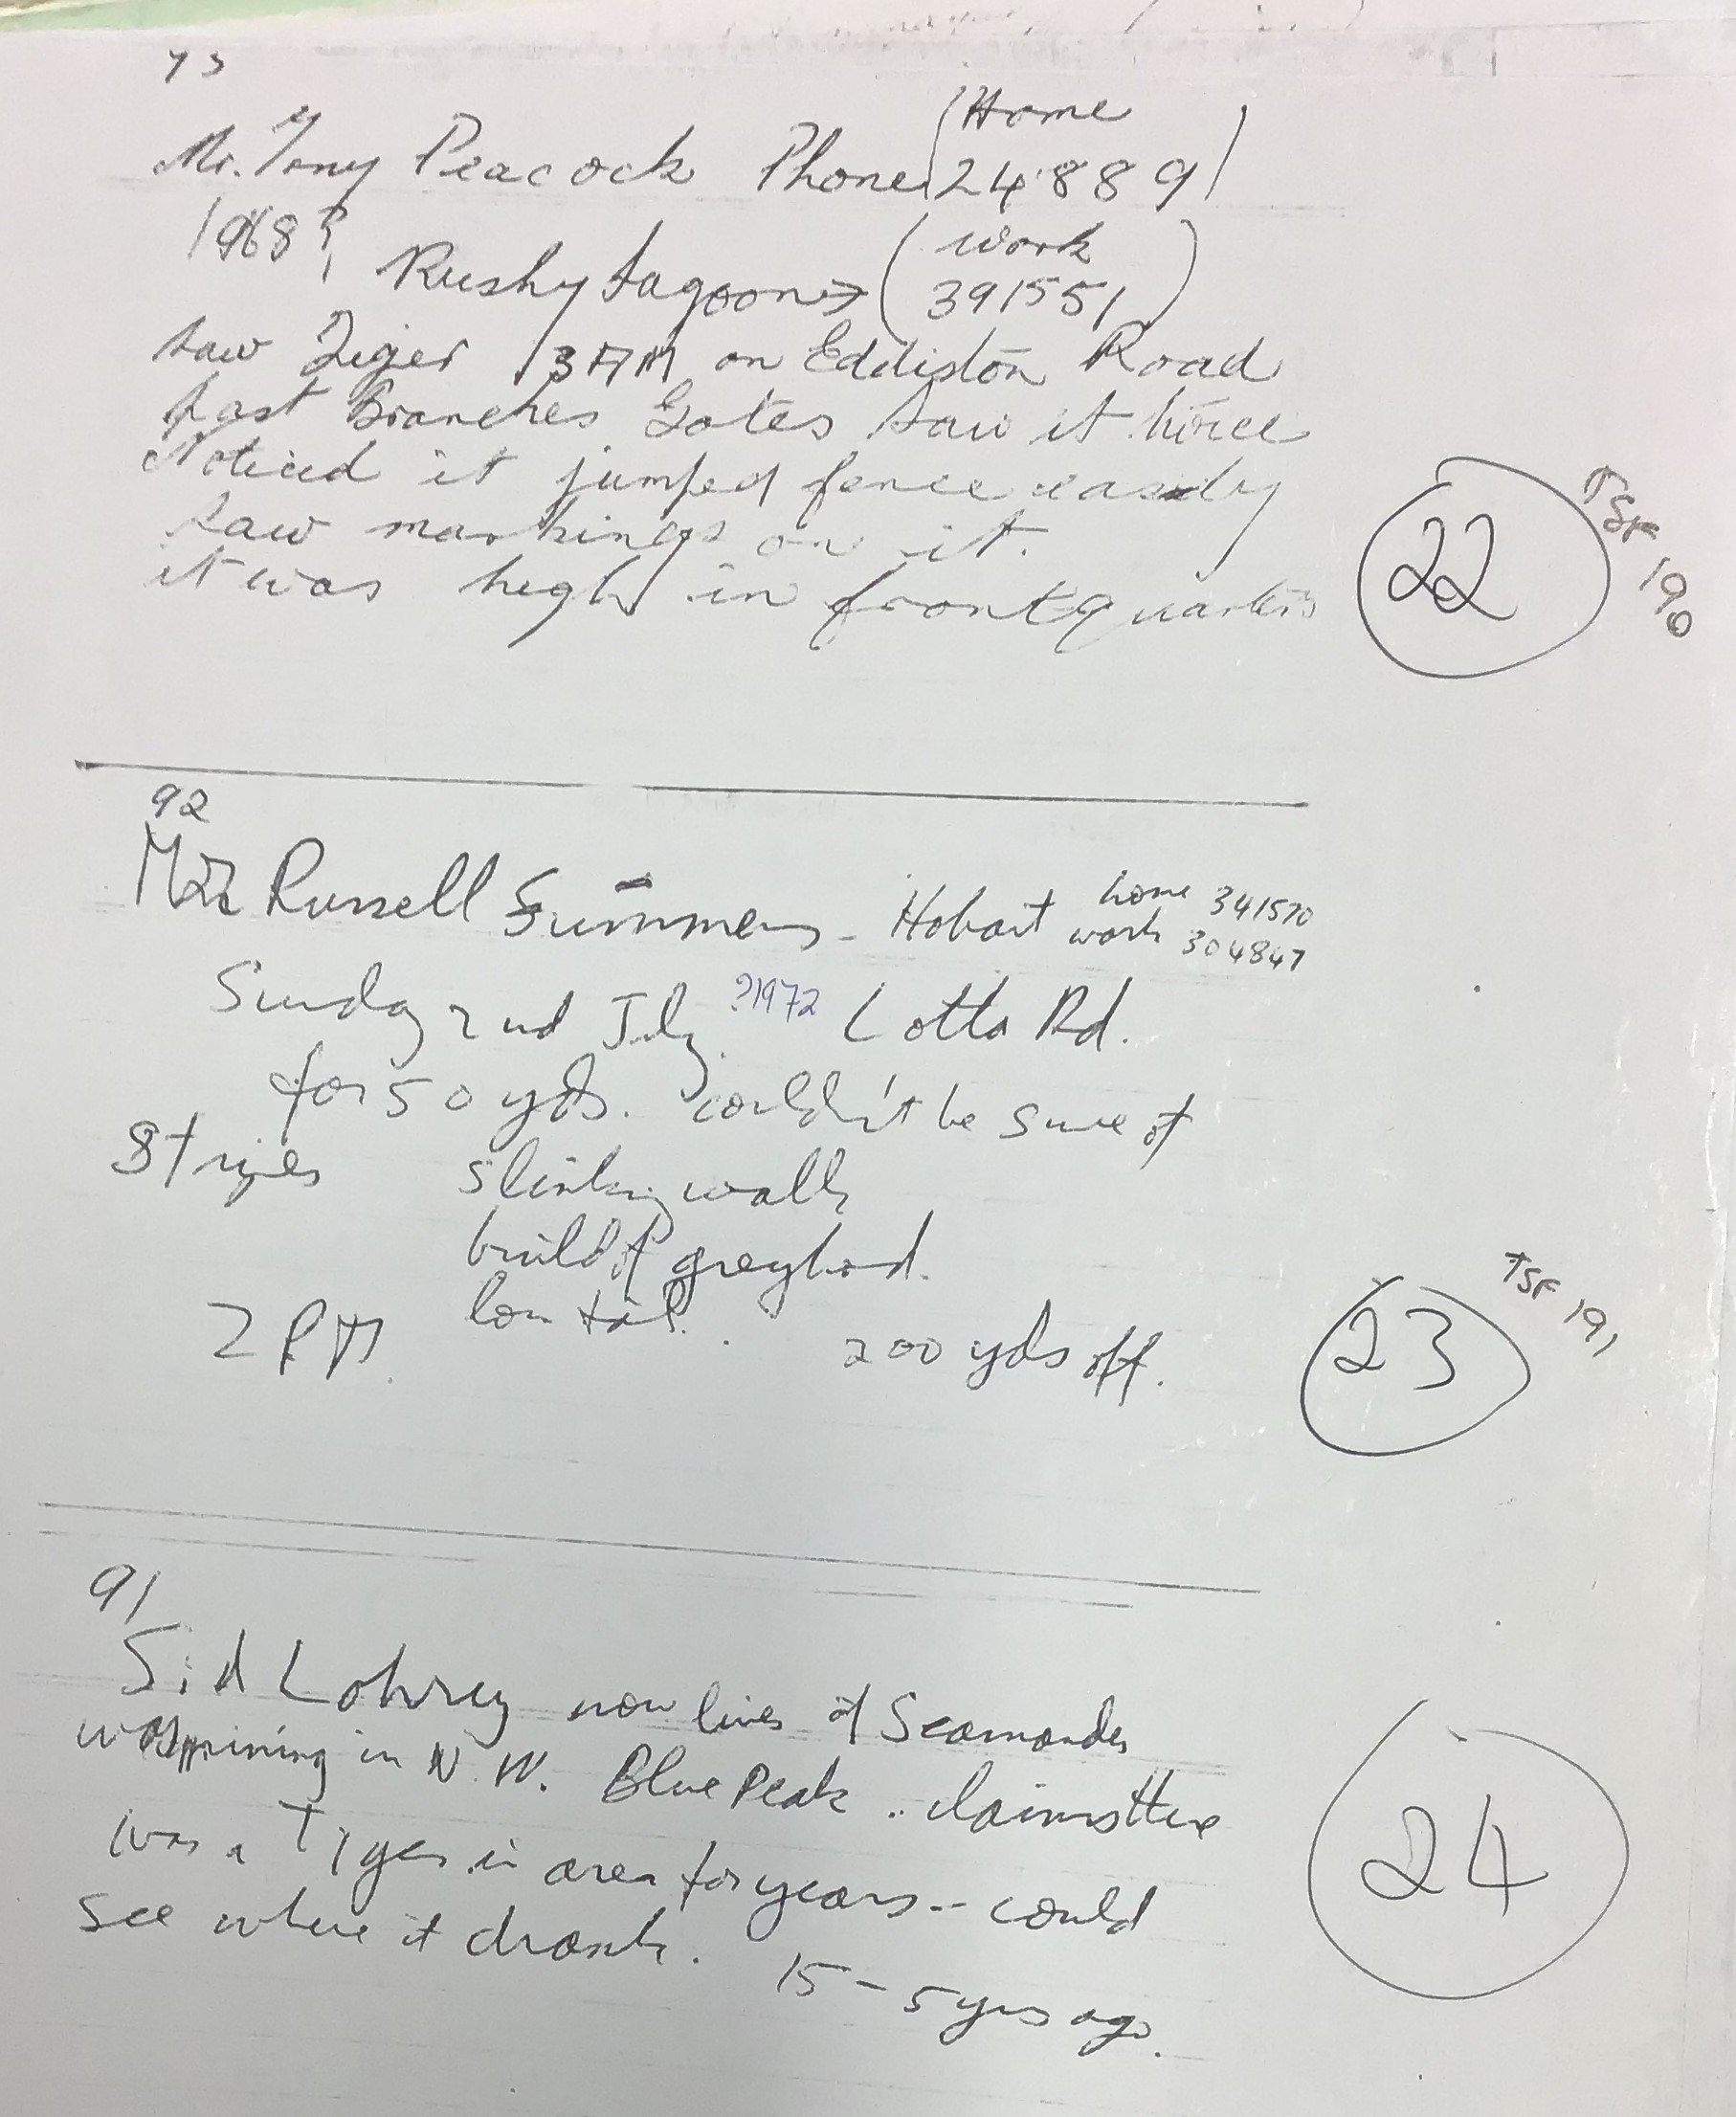 73
(Home
Mr. Tony Peacock Phone 24889)
1968?
(work
Rushy Lagoon → 391551)
saw Tiger 3 AM on Eddiston Road
past Branches Gates saw it twice
Noticed it jumped fence easily
saw markings on it.
it was high in front quarters
22
TSF 190
92
Mr Russell Summers - Hobart home 341570
work 304847
Sunday 2nd July ?1972 Lotta Rd.
for 50 yds. couldn't be sure of
Stripes slinking walk
build of greyhound.
2 PM. long tail. 200 yds off.
23
TSF 191
91
Sid Lohrey now lives at Scamander
was mining in N.W. Blue Peak .. claims there
was a Tiger in area for years -- could
see where it drank. 15 - 5 yrs ago.
24